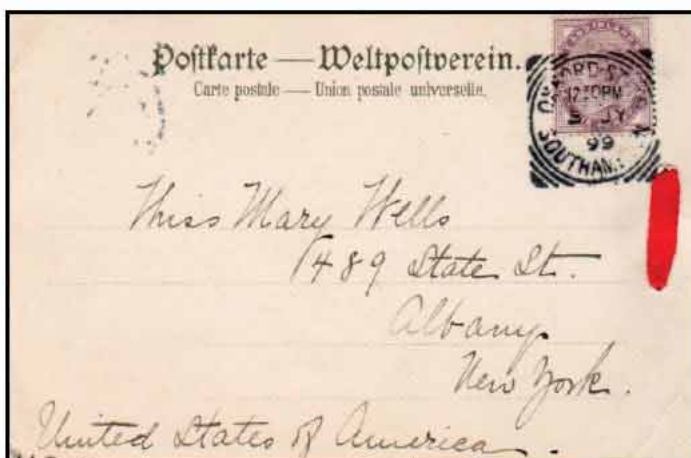 Postkarte — Weltpostverein.
Carte postale — Union postale universelle.
OXFORD ST
12 30PM
JY
99
SOUTHAM
Miss Mary Wells
489 State St.
Albany
New York.
United States of America.